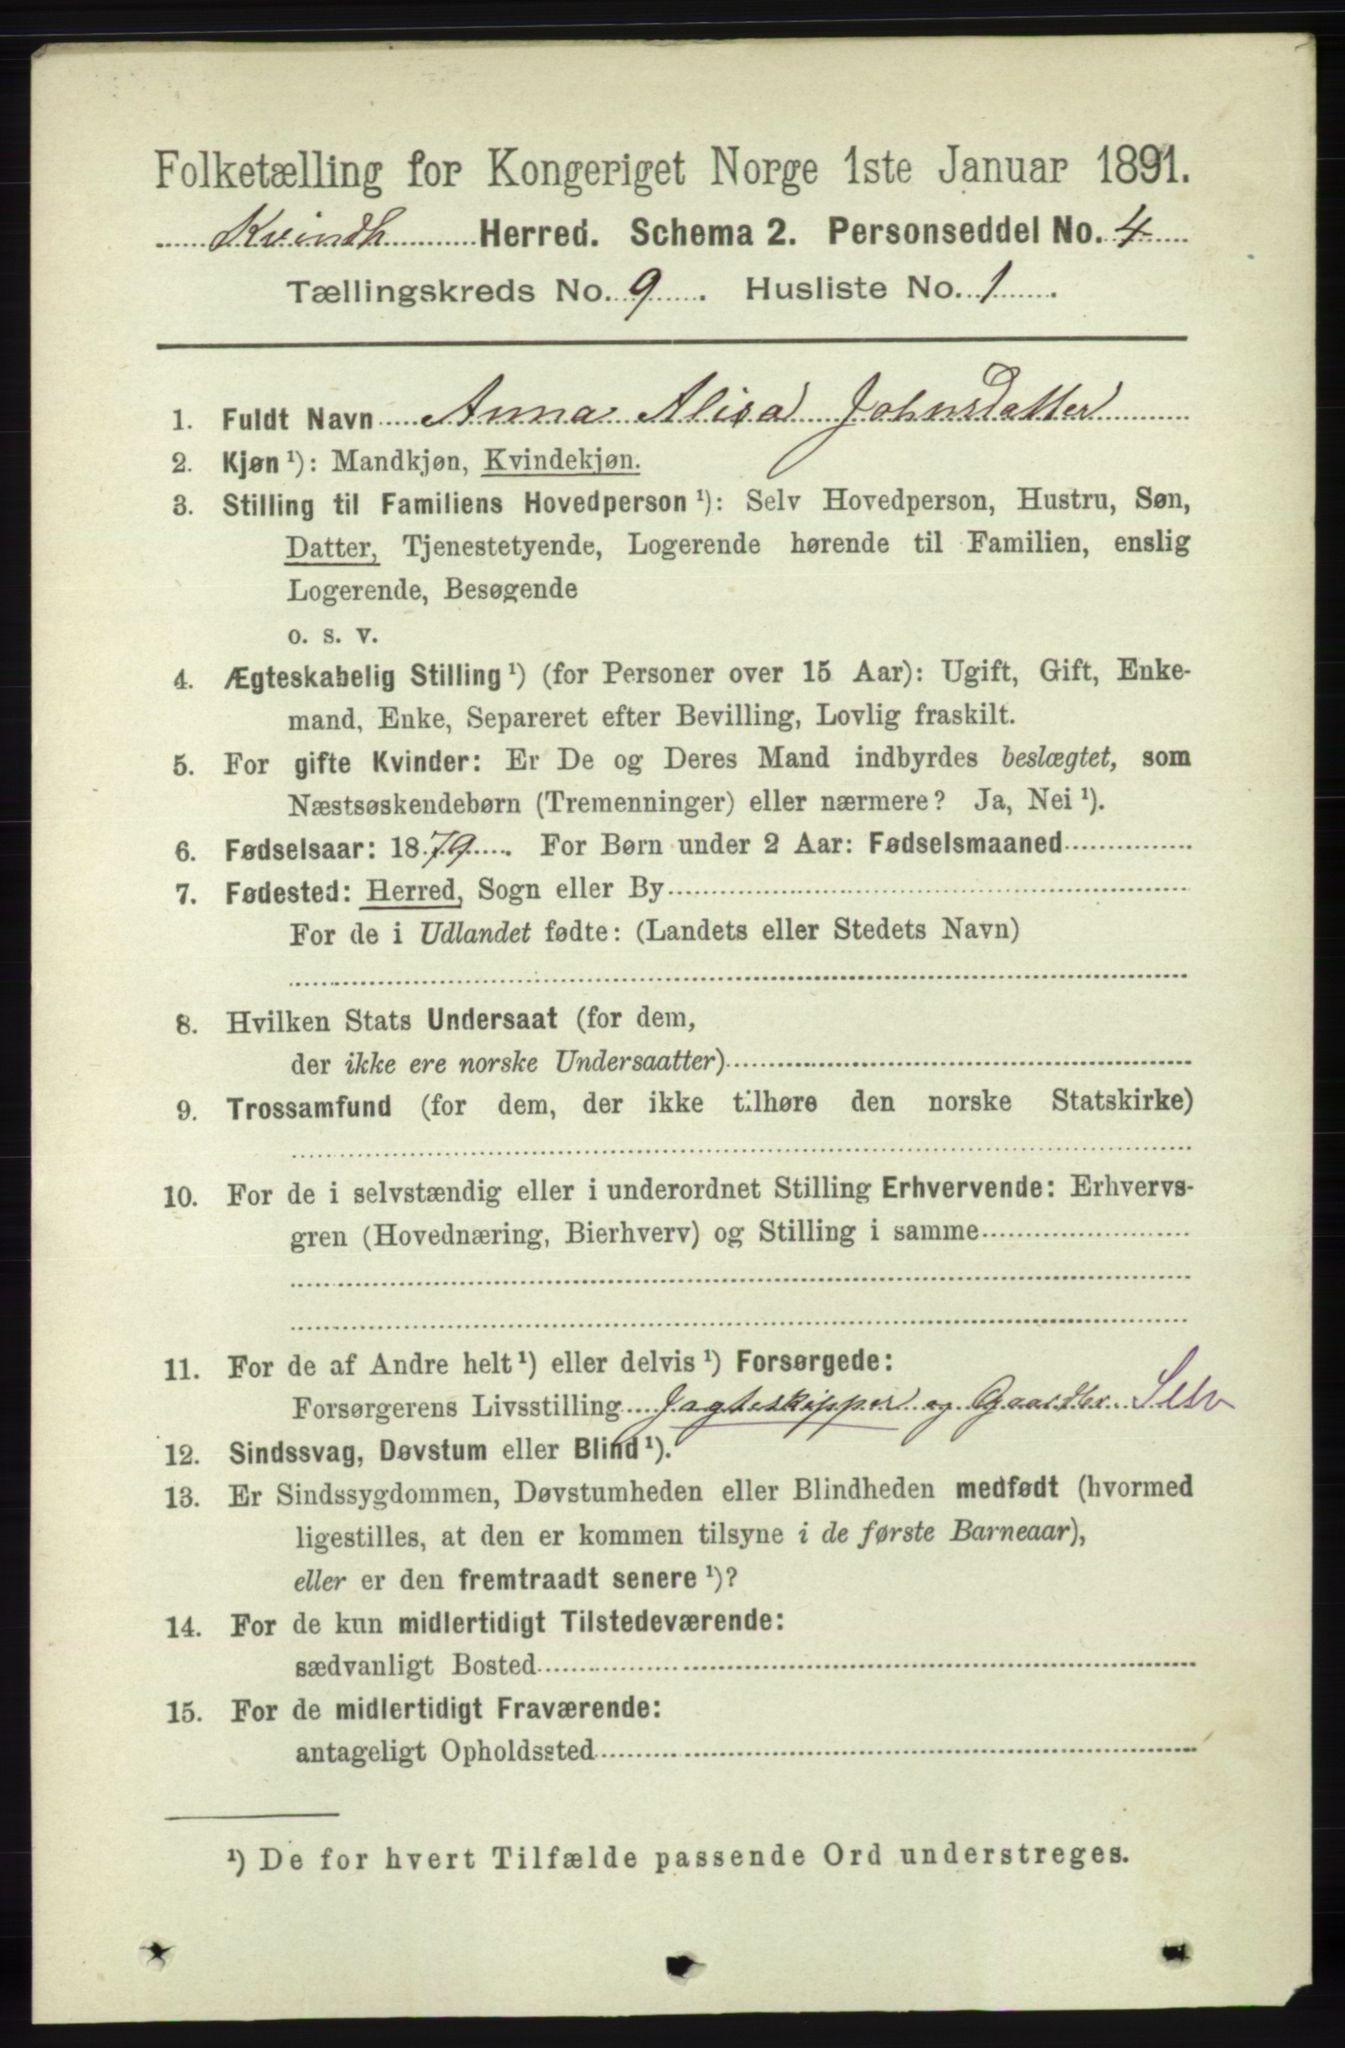 Folketælling for Kongeriget Norge 1ste Januar 1891.
Kvindh Herred. Schema 2. Personseddel No. 4
Tællingskreds No. 9. Husliste No. 1.
1. Fuldt Navn Anna Alisa Johnsdatter
2. Kjøn ¹): Mandkjøn, Kvindekjøn.
3. Stilling til Familiens Hovedperson ¹): Selv Hovedperson, Hustru, Søn,
Datter, Tjenestetyende, Logerende hørende til Familien, enslig
Logerende, Besøgende
o. s. v.
4. Ægteskabelig Stilling ¹) (for Personer over 15 Aar): Ugift, Gift, Enke-
mand, Enke, Separeret efter Bevilling, Lovlig fraskilt.
5. For gifte Kvinder: Er De og Deres Mand indbyrdes beslægtet, som
Næstsøskendebørn (Tremenninger) eller nærmere? Ja, Nei ¹).
6. Fødselsaar: 1879. For Børn under 2 Aar: Fødselsmaaned
7. Fødested: Herred, Sogn eller By
For de i Udlandet fødte: (Landets eller Stedets Navn)
8. Hvilken Stats Undersaat (for dem,
der ikke ere norske Undersaatter)
9. Trossamfund (for dem, der ikke tilhøre den norske Statskirke)
10. For de i selvstændig eller i underordnet Stilling Erhvervende: Erhvervs-
gren (Hovednæring, Bierhverv) og Stilling i samme
11. For de af Andre helt ¹) eller delvis ¹) Forsørgede:
Forsørgerens Livsstilling Jagteskipper og Gaardbr. Selv
12. Sindssvag, Døvstum eller Blind ¹).
13. Er Sindssygdommen, Døvstumheden eller Blindheden medfødt (hvormed
ligestilles, at den er kommen tilsyne i de første Barneaar),
eller er den fremtraadt senere ¹)?
14. For de kun midlertidigt Tilstedeværende:
sædvanligt Bosted
15. For de midlertidigt Fraværende:
antageligt Opholdssted
¹) De for hvert Tilfælde passende Ord understreges.